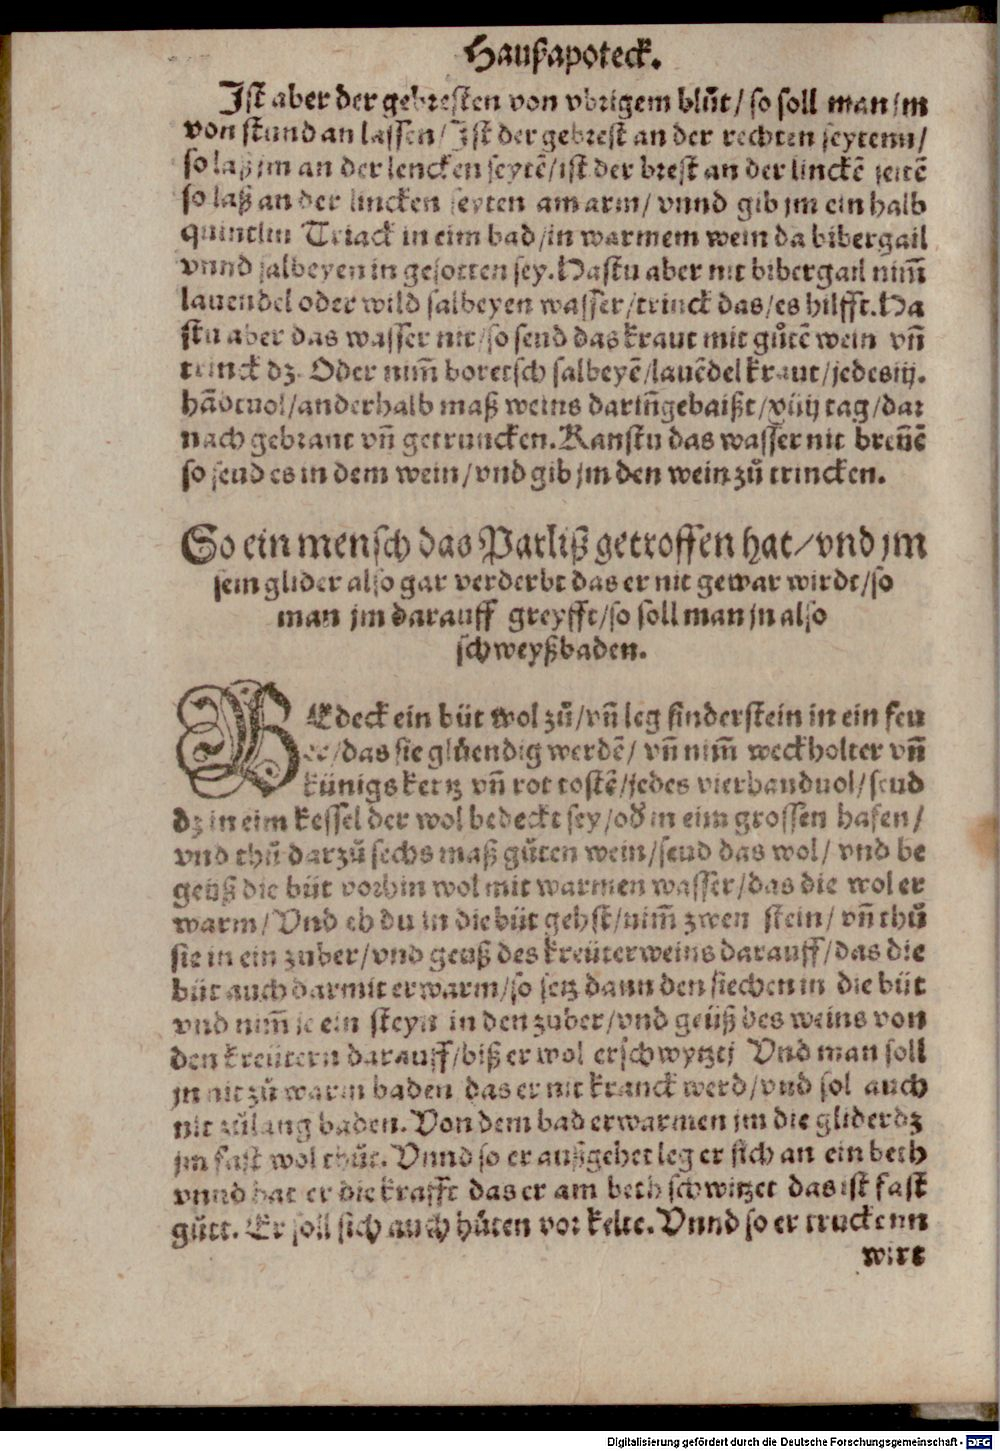 Haußapoteck.
Ist aber der gebresten von vbrigem blůt/ so soll man jm
von stund an lassen/ Ist der gebrest an der rechten seytenn/
so laß jm an der lencken seytē/ist der brest an der linckē seitē
so laß an der lincken seyten am arm/ vnnd gib jm ein halb
quintlin Triack in eim bad/in warmem wein da bibergail
vnnd salbeyen in gesotten sey. Hastu aber nit bibergail nim̄
lauendel oder wild salbeyen wasser/trinck das/es hilfft. Ha
stu aber das wasser nit/so seud das kraut mit gůtē wein vn̄
trinck dz. Oder nim̄ boretsch salbeyē/lauēdel kraut/jedes iij.
hādtuol/anderhalb maß weins darin̄ gebaißt/xiiij tag/dar
nach gebrant vn̄ getruncken. Kanstu das wasser nit bren̄ē
so seud es in dem wein/vnd gib jm den wein zů trincken.
So ein mensch das Parliß getroffen hat/vnd jm
sein glider also gar verderbt das er nit gewar wirdt/so
man jm darauff greyfft/so soll man jn also
schweyßbaden.
BEdeck ein büt wol zů/vn̄ leg sinderstein in ein feu
er/das sie glüendig werdē/ vn̄ nim̄ weckholter vn̄
künigskertz vn̄ rot tostē/jedes vierhanduol/seud
dz in eim kessel der wol bedeckt sey/oď in eim grossen hafen/
vnd thů darzů sechs maß gůten wein/seud das wol/ vnd be
geüß die büt vorhin wol mit warmen wasser/das die wol er
warm/ Vnd eh du in die büt gehst/nim̄ zwen stein/ vn̄ thů
sie in ein zuber/vnd geuß des kreüterweins darauff/das die
büt auch darmit erwarm/so setz dann den siechen in die büt
vnd nim̄ je ein steyn in den zuber/vnd geüß des weins von
den kreütern darauff/biß er wol erschwytzet Vnd man soll
jn nit zů warm baden das er nit kranck werd/vnd sol auch
nit zůlang baden. Von dem bad erwarmen jm die glider dz
jm fast wol thůt. Vnnd so er außgehet leg er sich an ein beth
vnnd hat er die krafft das er am beth schwitzet das ist fast
gůtt. Er soll sich auch hüten vor kelte. Vnnd so er truckenn
wirt
Digitalisierung gefördert durch die Deutsche Forschungsgemeinschaft - DFG